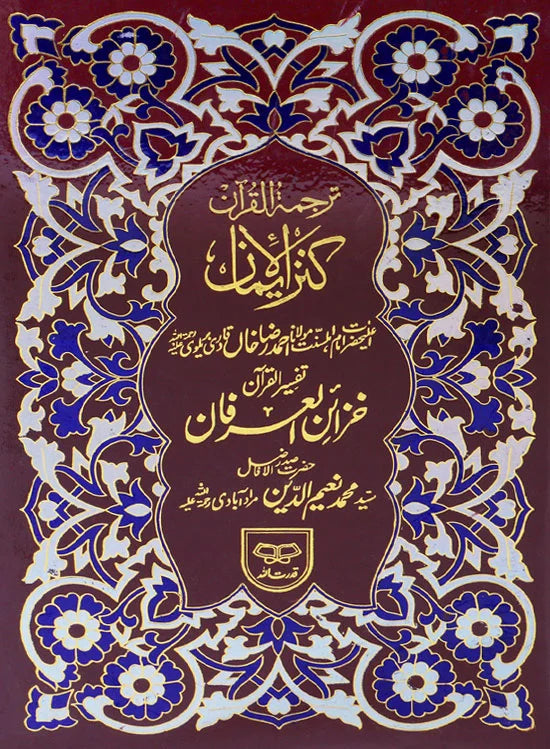 ترجمۃ القرآن
کنز الایمان
اعلیٰحضرت امام اہلسنّت مولانا احمد رضا خاں قادری بریلوی رحمۃ اللہ علیہ
تفسیر القرآن
خزائن العرفان
حضرت صدر الافاضل
سیّد محمد نعیم الدّین مراد آبادی رحمۃ اللہ علیہ
قدرت اللہ